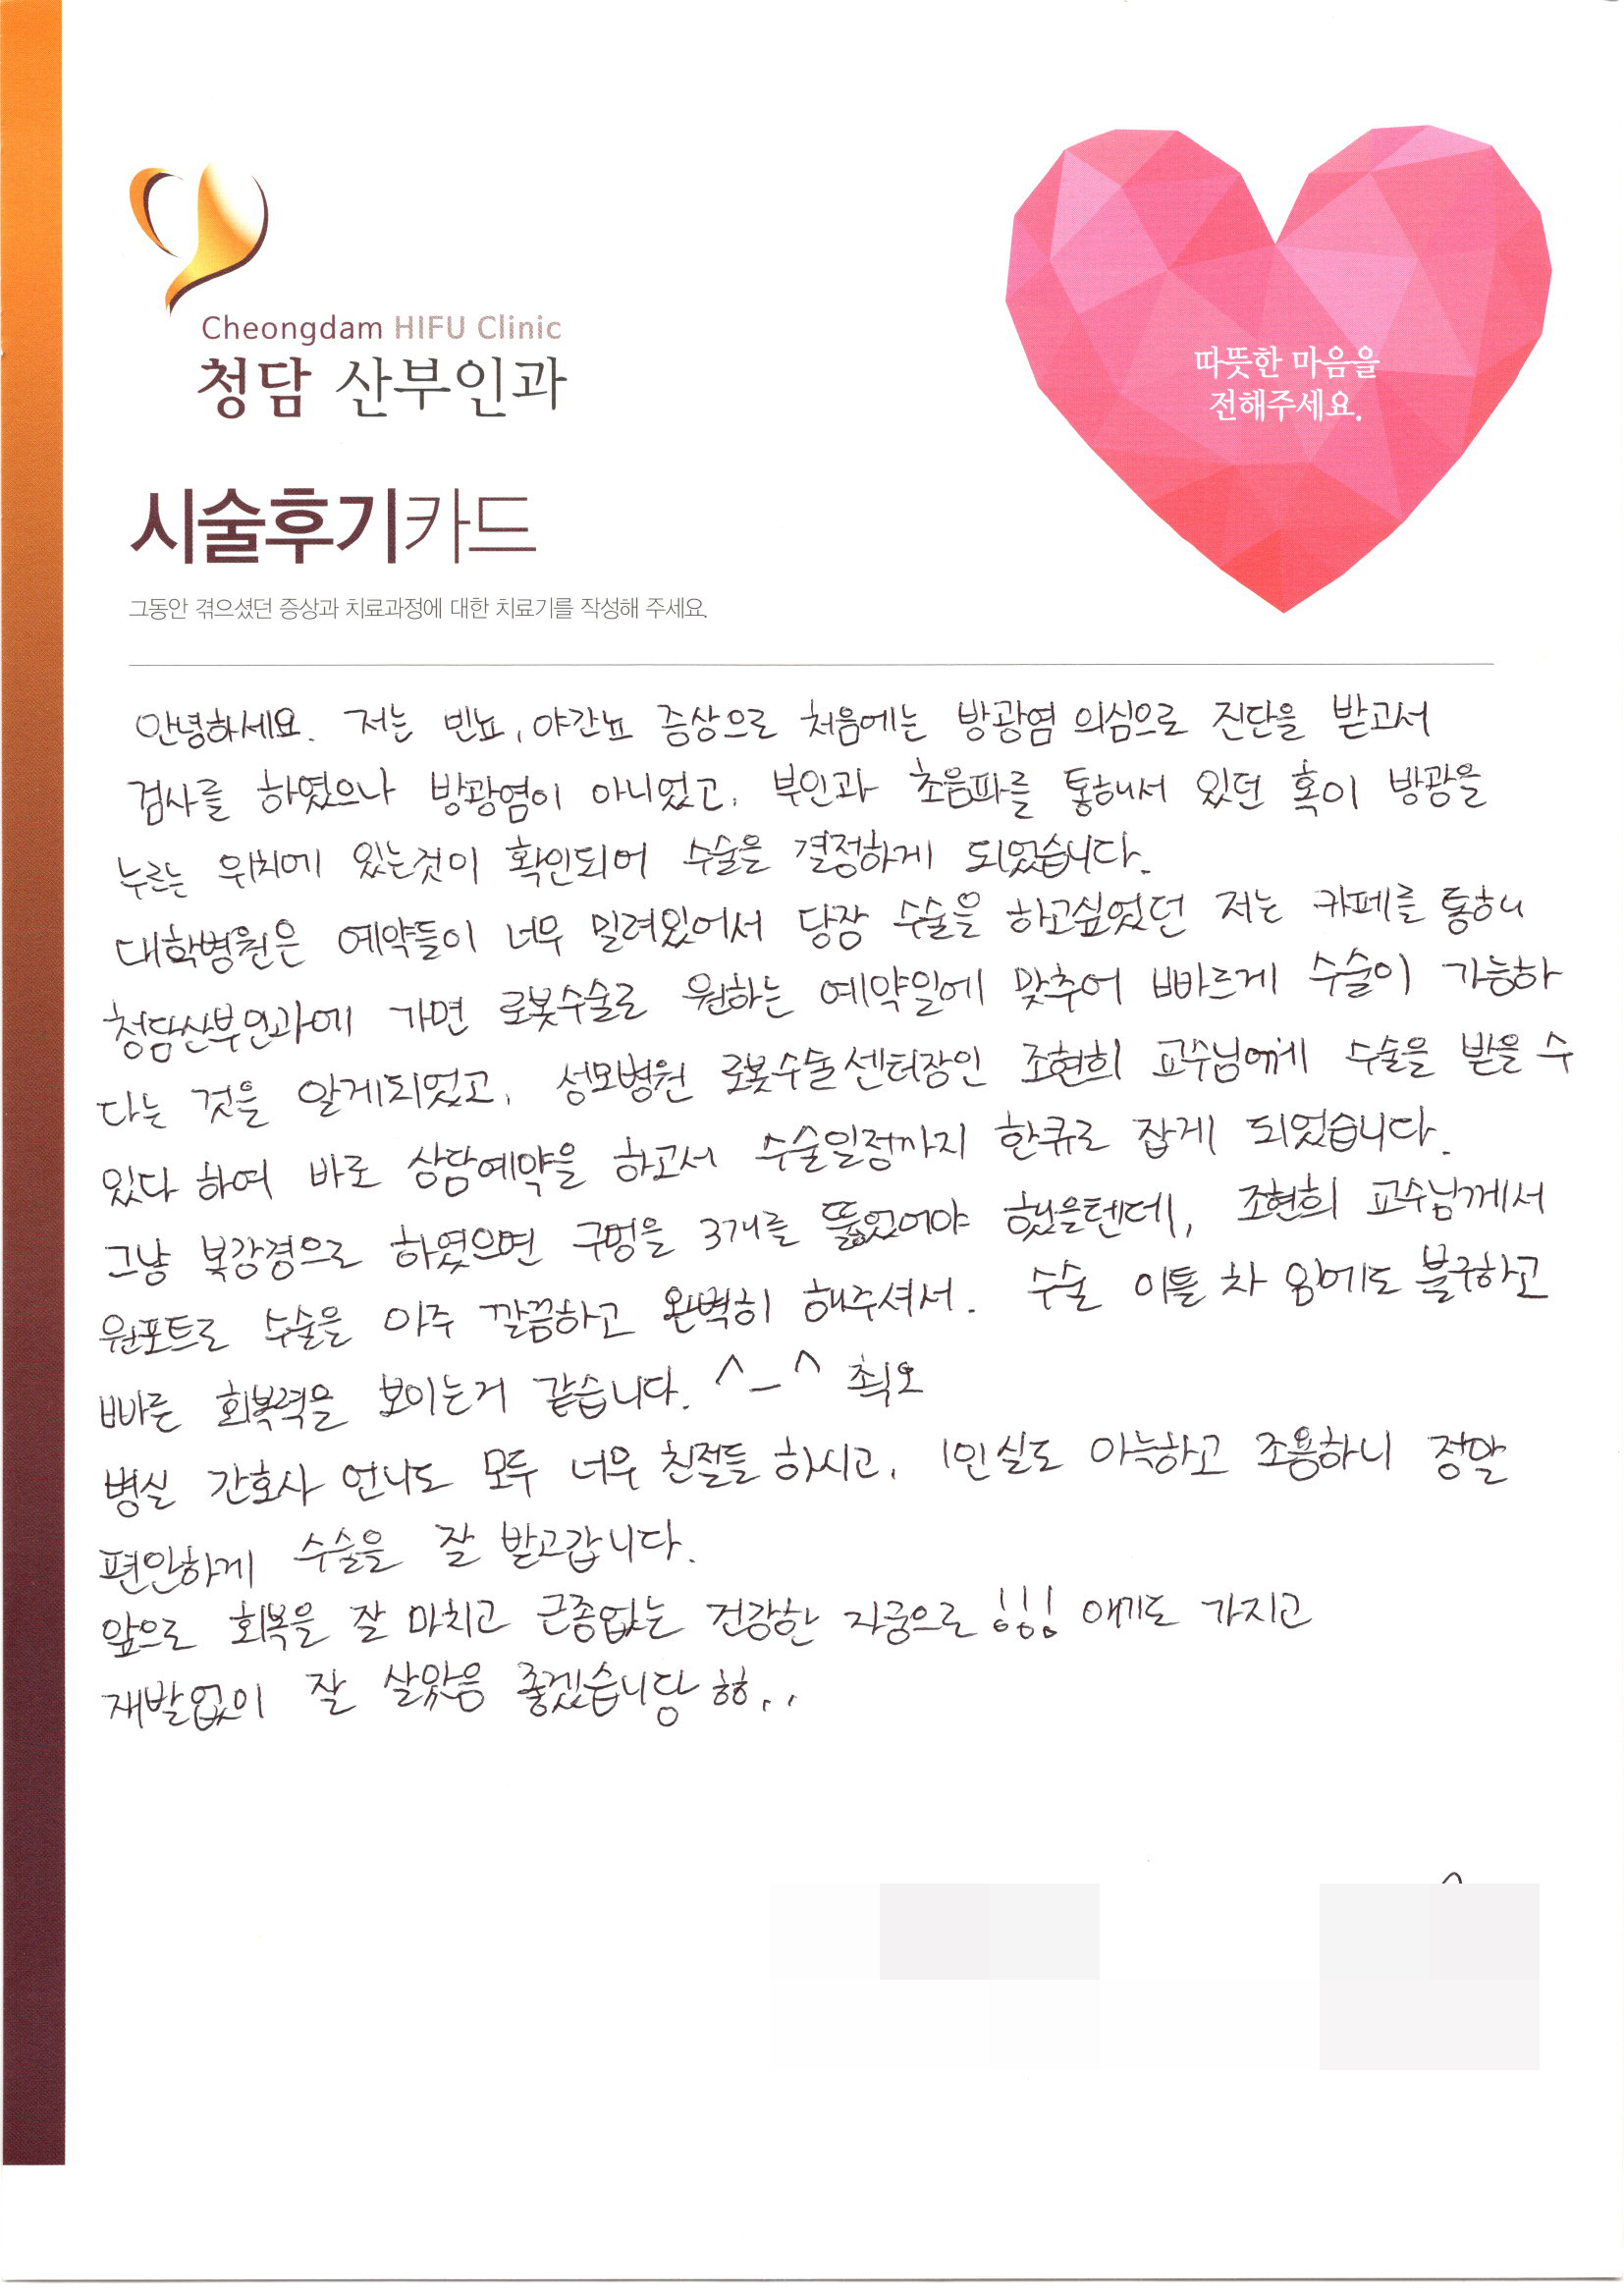 Cheongdam HIFU Clinic
청담 산부인과
따뜻한 마음을
전해주세요.
시술후기카드
그동안 겪으셨던 증상과 치료과정에 대한 치료기를 작성해 주세요.
안녕하세요. 저는 빈뇨, 야간뇨 증상으로 처음에는 방광염 의심으로 진단을 받고서
검사를 하였으나 방광염이 아니었고, 부인과 초음파를 통해서 있던 혹이 방광을
누르는 위치에 있는것이 확인되어 수술을 결정하게 되었습니다.
대학병원은 예약들이 너무 밀려있어서 당장 수술을 하고싶었던 저는 카페를 통해
청담산부인과에 가면 로봇수술로 원하는 예약일에 맞추어 빠르게 수술이 가능하
다는 것을 알게되었고, 성모병원 로봇수술센터장인 조현희 교수님에게 수술을 받을 수
있다 하여 바로 상담예약을 하고서 수술일정까지 한큐로 잡게 되었습니다.
그냥 복강경으로 하였으면 구멍을 3개를 뚫었어야 했을텐데, 조현희 교수님께서
원포트로 수술을 아주 깔끔하고 완벽히 해주셔서. 수술 이틀 차 임에도 불구하고
빠른 회복력을 보이는거 같습니다. ^_^ 최오
병실 간호사 언니도 모두 너무 친절들 하시고, 1인실도 아늑하고 조용하니 정말
편안하게 수술을 잘 받고갑니다.
앞으로 회복을 잘 마치고 근종없는 건강한 자궁으로 !!! 애기도 가지고
재발없이 잘 살았음 좋겠습니당 ㅎㅎ..